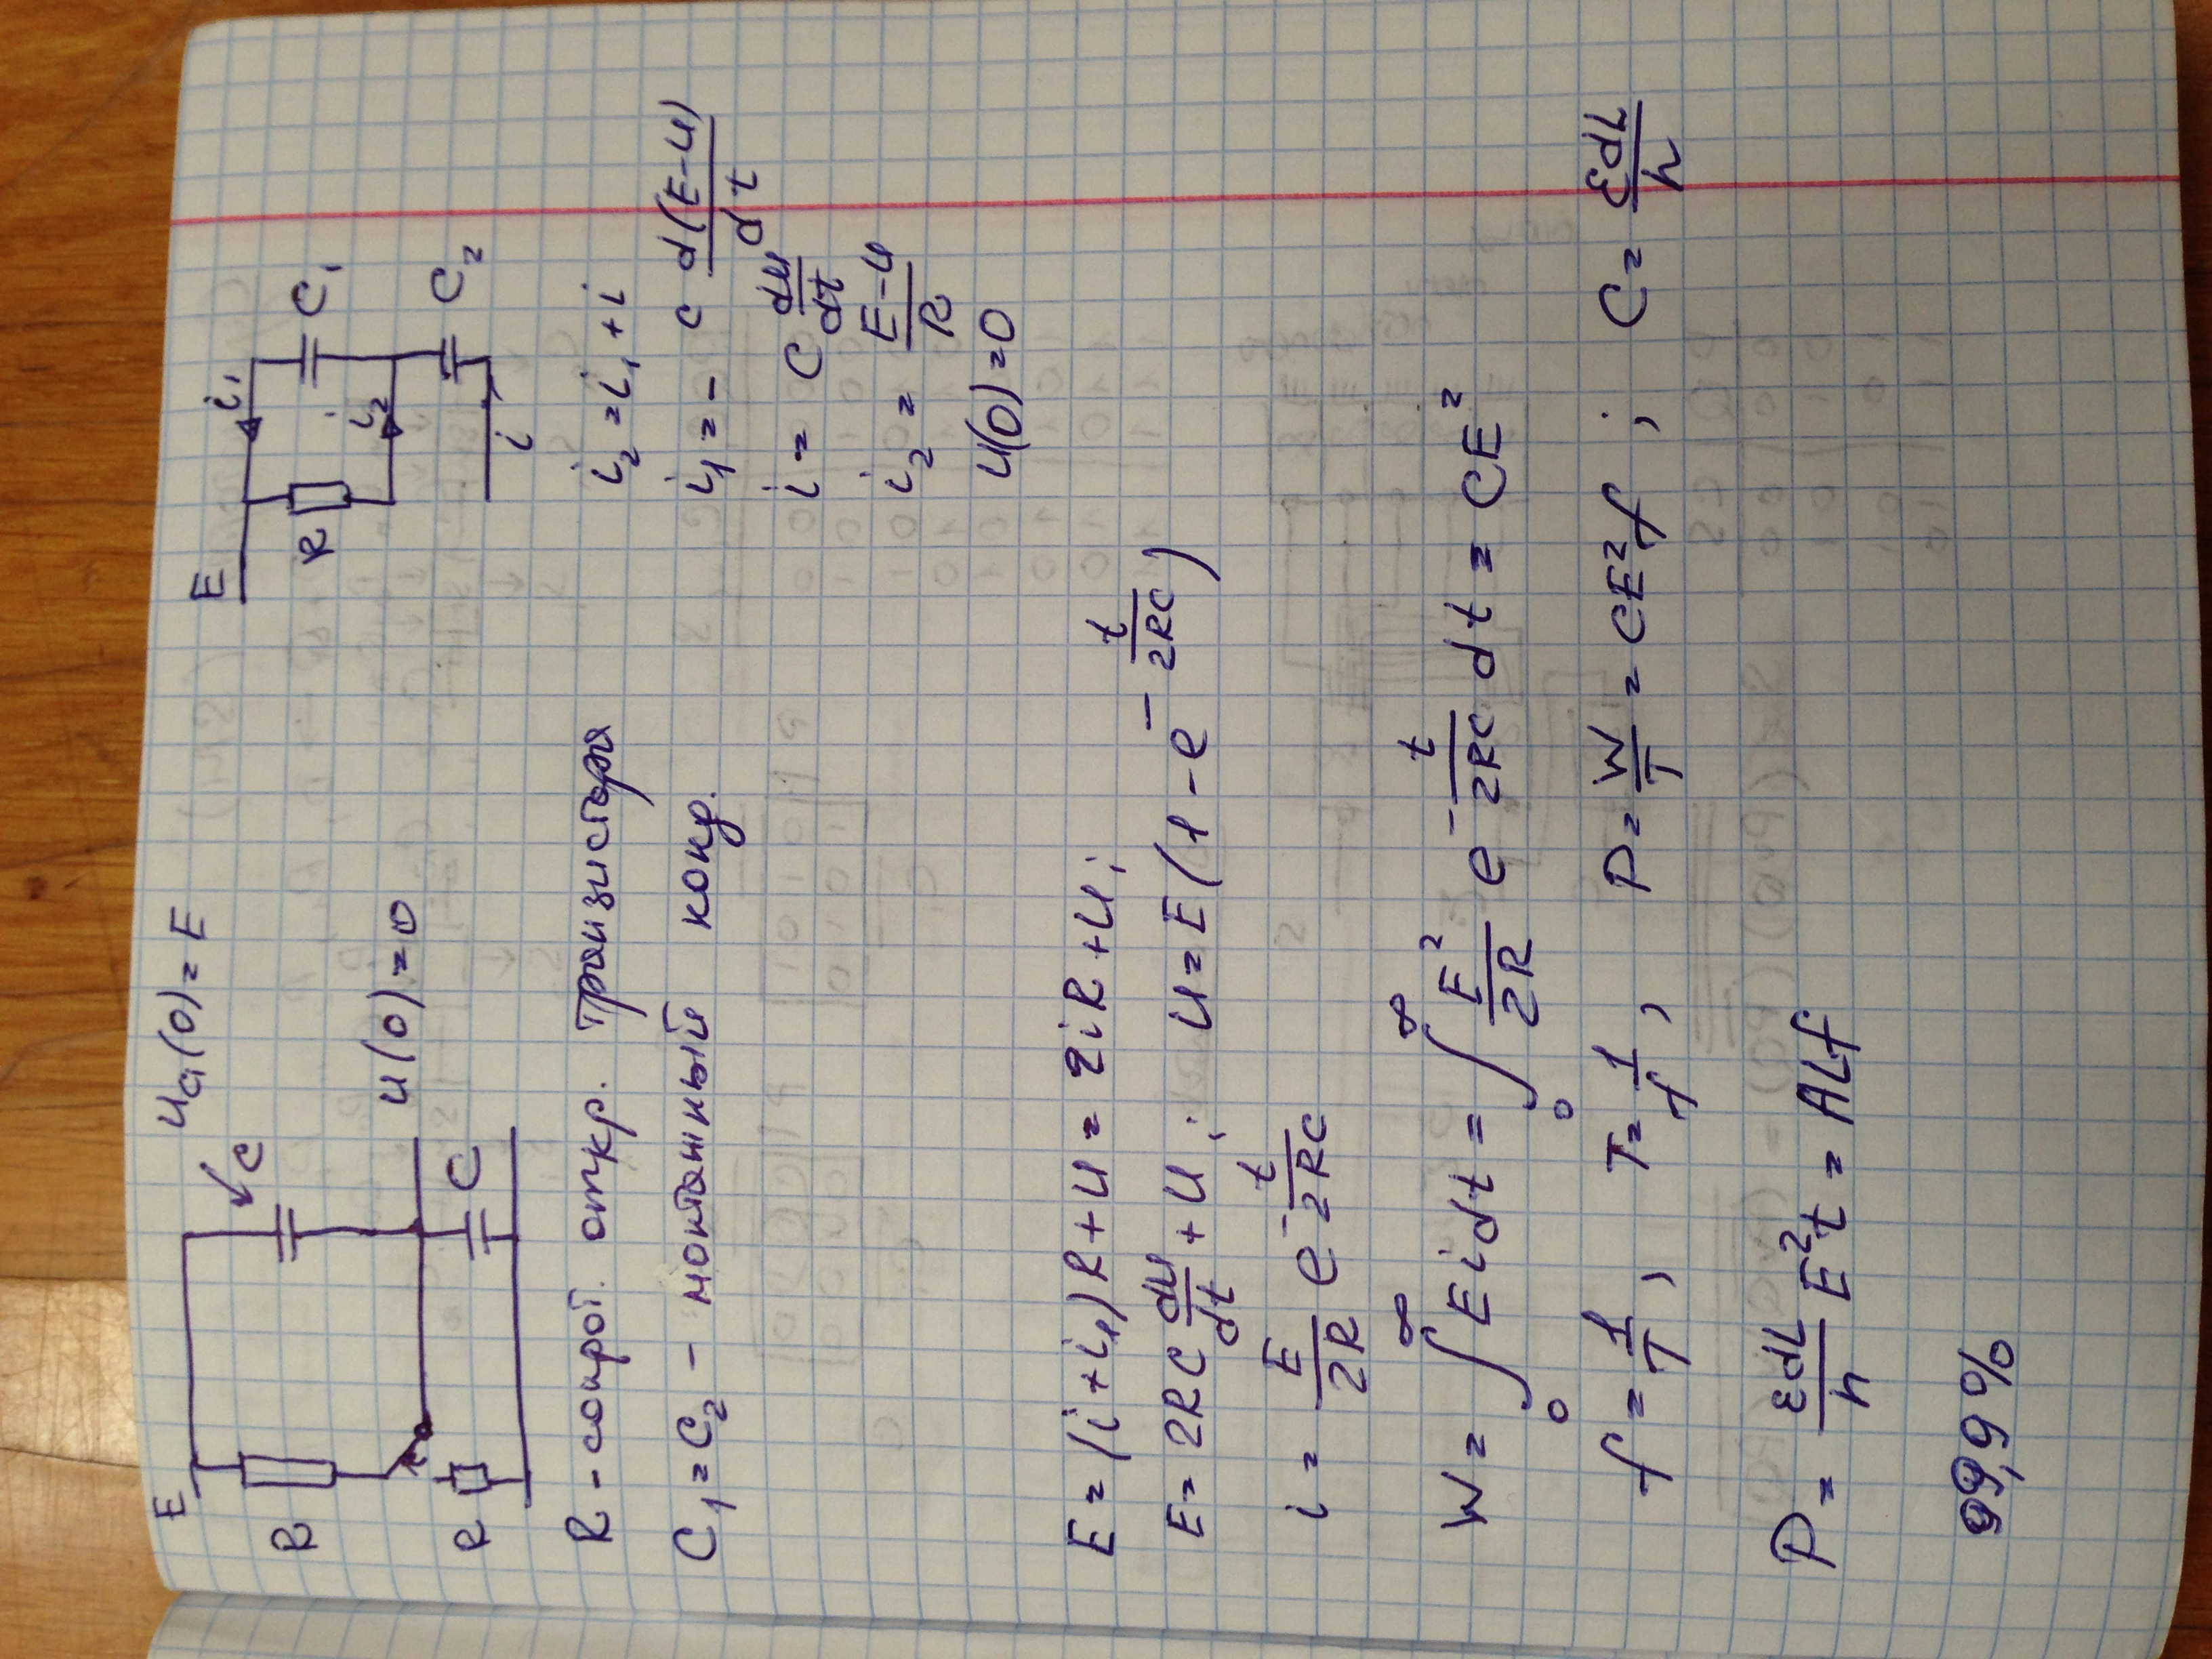 E
u_C1(0) = E
C
R
u(0) = 0
R
C
R - сопрот. откр. транзистора
C₁ = C₂ - монтажный конд.
E
i₁
R
C₁
i₂
C₂
i
i₂ = i₁ + i
i₁ = - C d(E-u)/dt
i = C du/dt
i₂ = (E-u)/R
u(0) = 0
E = (i + i₁)R + u = 2iR + u;
E = 2RC du/dt + u; u = E(1 - e^(-t/2RC))
i = E/2R e^(-t/2RC)
W = ∫₀^∞ E i dt = ∫₀^∞ E²/2R e^(-t/2RC) dt = CE²
f = 1/T, T = 1/f, P = W/T = CE²f ; C = εdL/h
P = εdL/h E²t = ALf
99,9%